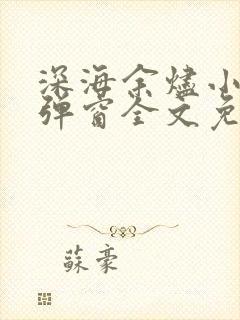 深海余烬小
弹窗全文免
蘇豪